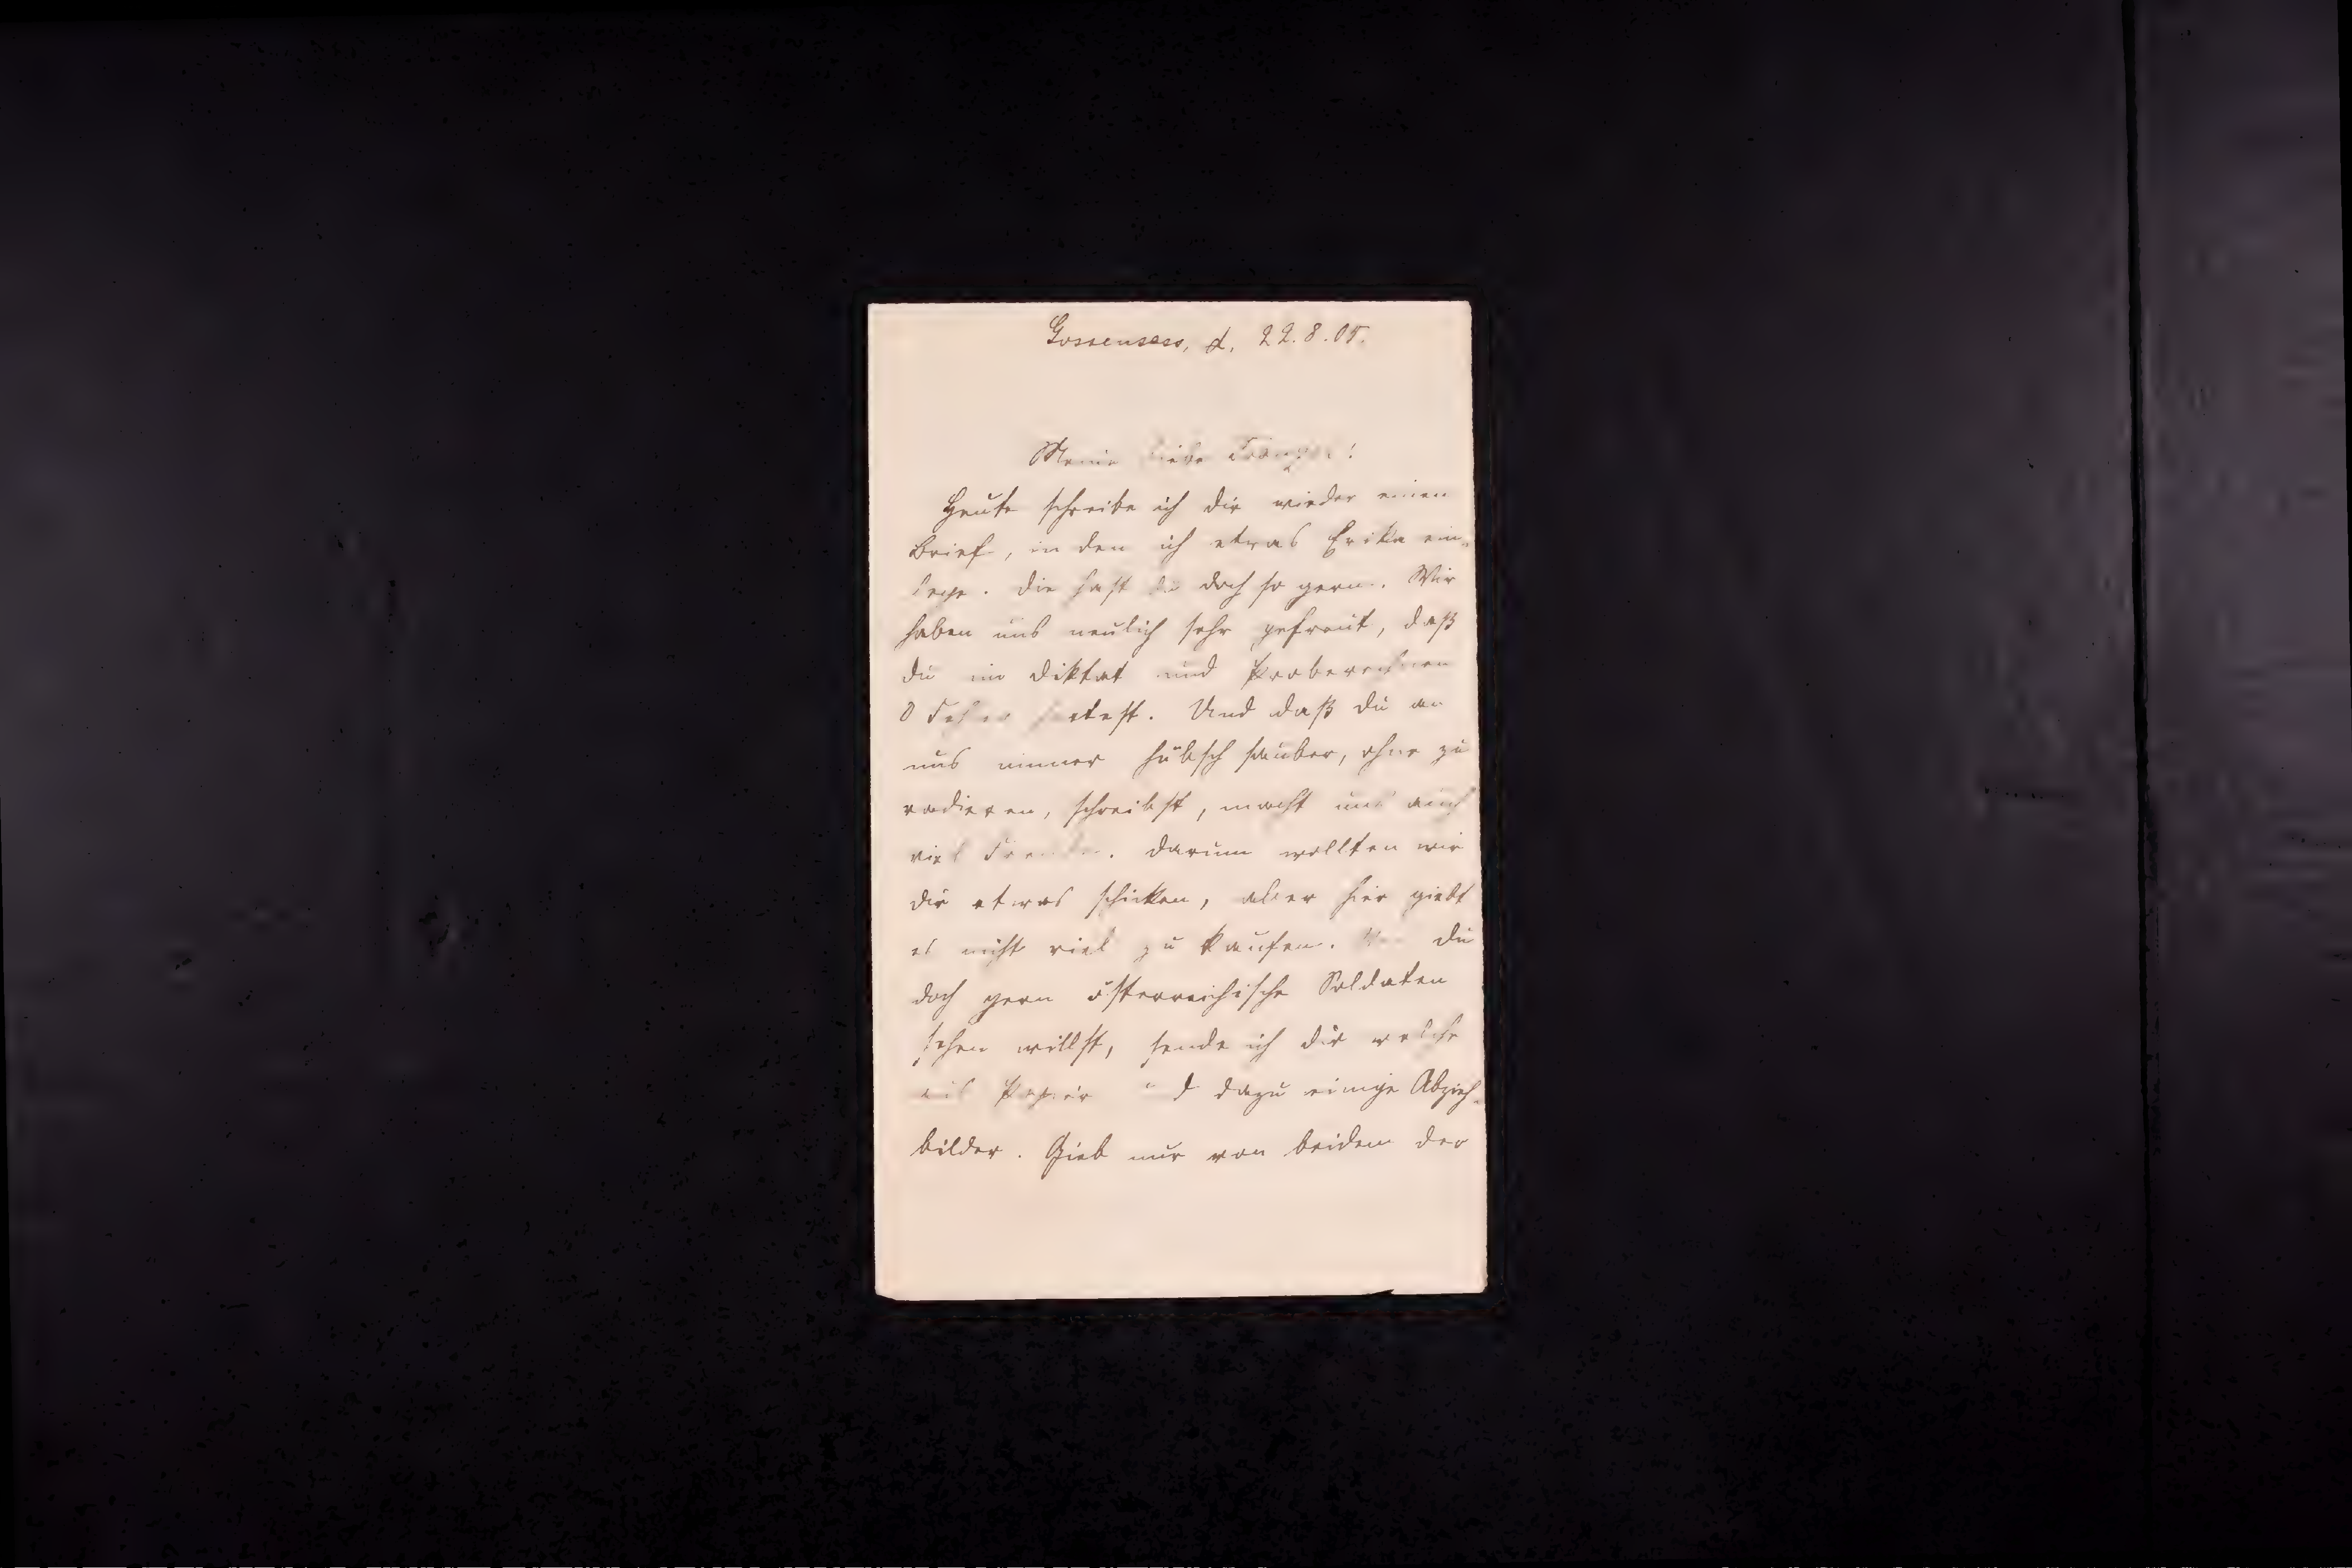 Gossensass, d. 22.8.05.
Meine liebe
Heute schreibe ich dir wieder einen
Brief, in den ich etwas Erika ein-
lege. Die hast du doch so gern. Wir
haben uns neulich sehr gefreut, daß
du im Diktat und Proberechnen
0 Fehler hattest. Und daß du an
uns immer hübsch sauber, ohne zu
radieren, schreibst, macht uns auch
viel Freude. Darum wollten wir
dir etwas schicken, aber hier giebt
es nicht viel zu kaufen. du
doch gern österreichische Soldaten
sehen willst, sende ich dir welche
aus Papier und dazu einige Abzieh-
bilder. Gieb nur von beidem der